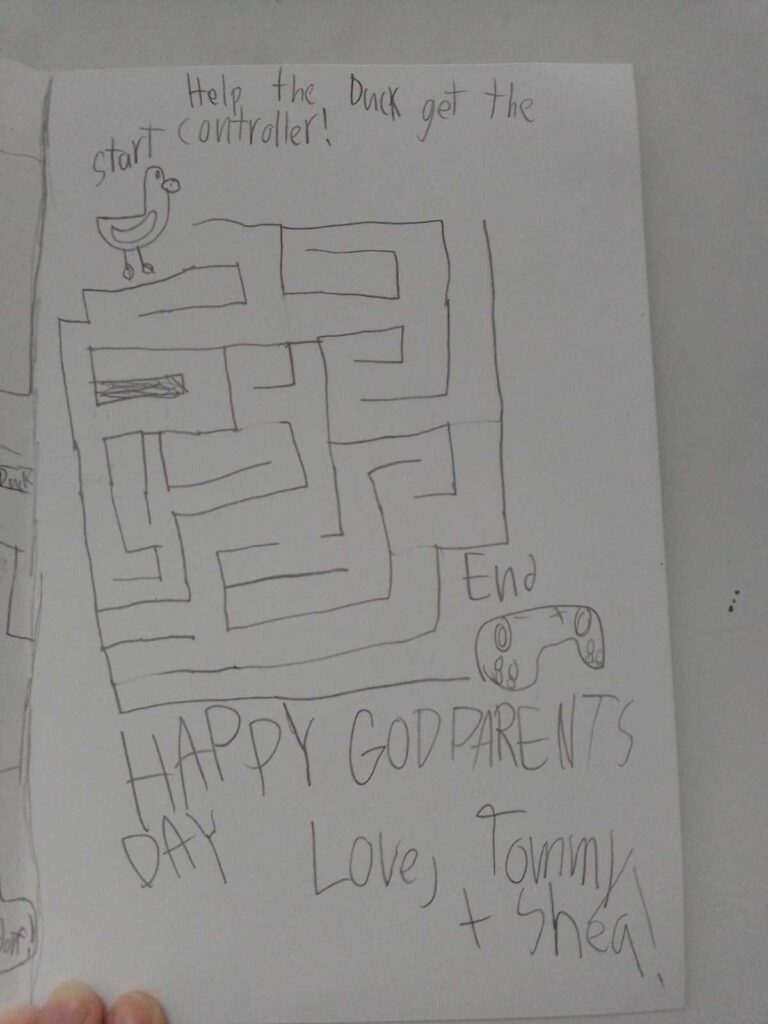 Help the Duck get the
controller!
Start
End
HAPPY GODPARENTS
DAY Love, Tommy
+ Shea!